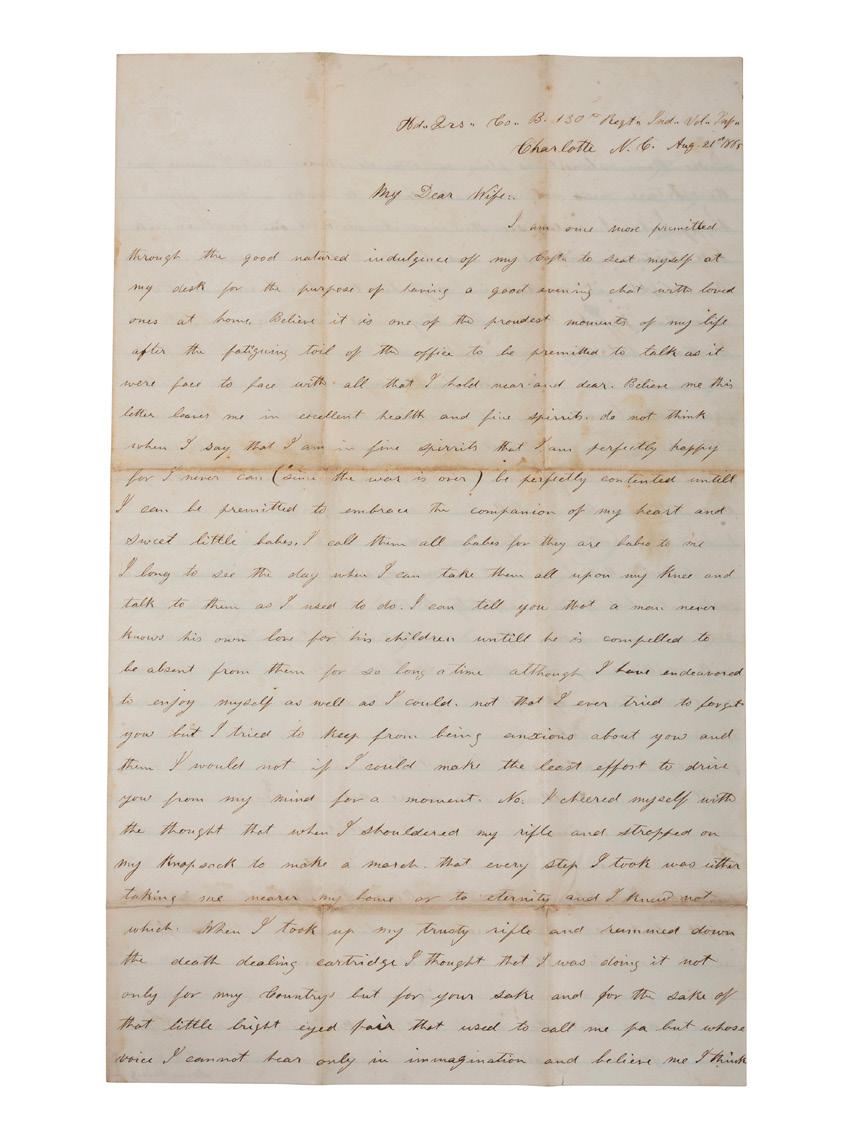 Hd. Qrs. Co. B. 130th Regt. Ind. Vol. Inf.
Charlotte N. C. Aug. 21st 1865
My Dear Wife:
I am one more premitted
through the good natured indulgence of my Capt. to seat myself at
my desk for the purpose of having a good evening chat with loved
ones at home. Believe it is one of the proudest moments of my life
after the fatiguing toil of the office to be premitted to talk as it
were face to face with all that I hold near and dear. Believe me this
letter leaves me in excellent health and fine spirrits. do not think
when I say that I am in fine spirrits that I am perfectly happy
for I never can (since the war is over) be perfectly contented untill
I can be premitted to embrace the companion of my heart and
sweet little babes. I call them all babes for they are babes to me
I long to see the day when I can take them all upon my knee and
talk to them as I used to do. I can tell you that a man never
knows his own love for his children untill he is compelled to
be absent from them for so long a time although I have endeavored
to enjoy myself as well as I could. not that I ever tried to forget
you but I tried to keep from being anxious about you and
them I would not if I could make the least effort to drive
you from my mind for a moment. No. I cheered myself with
the thought that when I shouldered my rifle and strapped on
my knapsack to make a march. that every step I took was either
taking me nearer my home or to eternity and I knew not
which. When I took up my trusty rifle and rammed down
the death dealing cartridge I thought that I was doing it not
only for my Countrys but for your sake and for the sake of
that little bright eyed pair that used to call me pa but whose
voice I cannot hear only in immagination and believe me I think